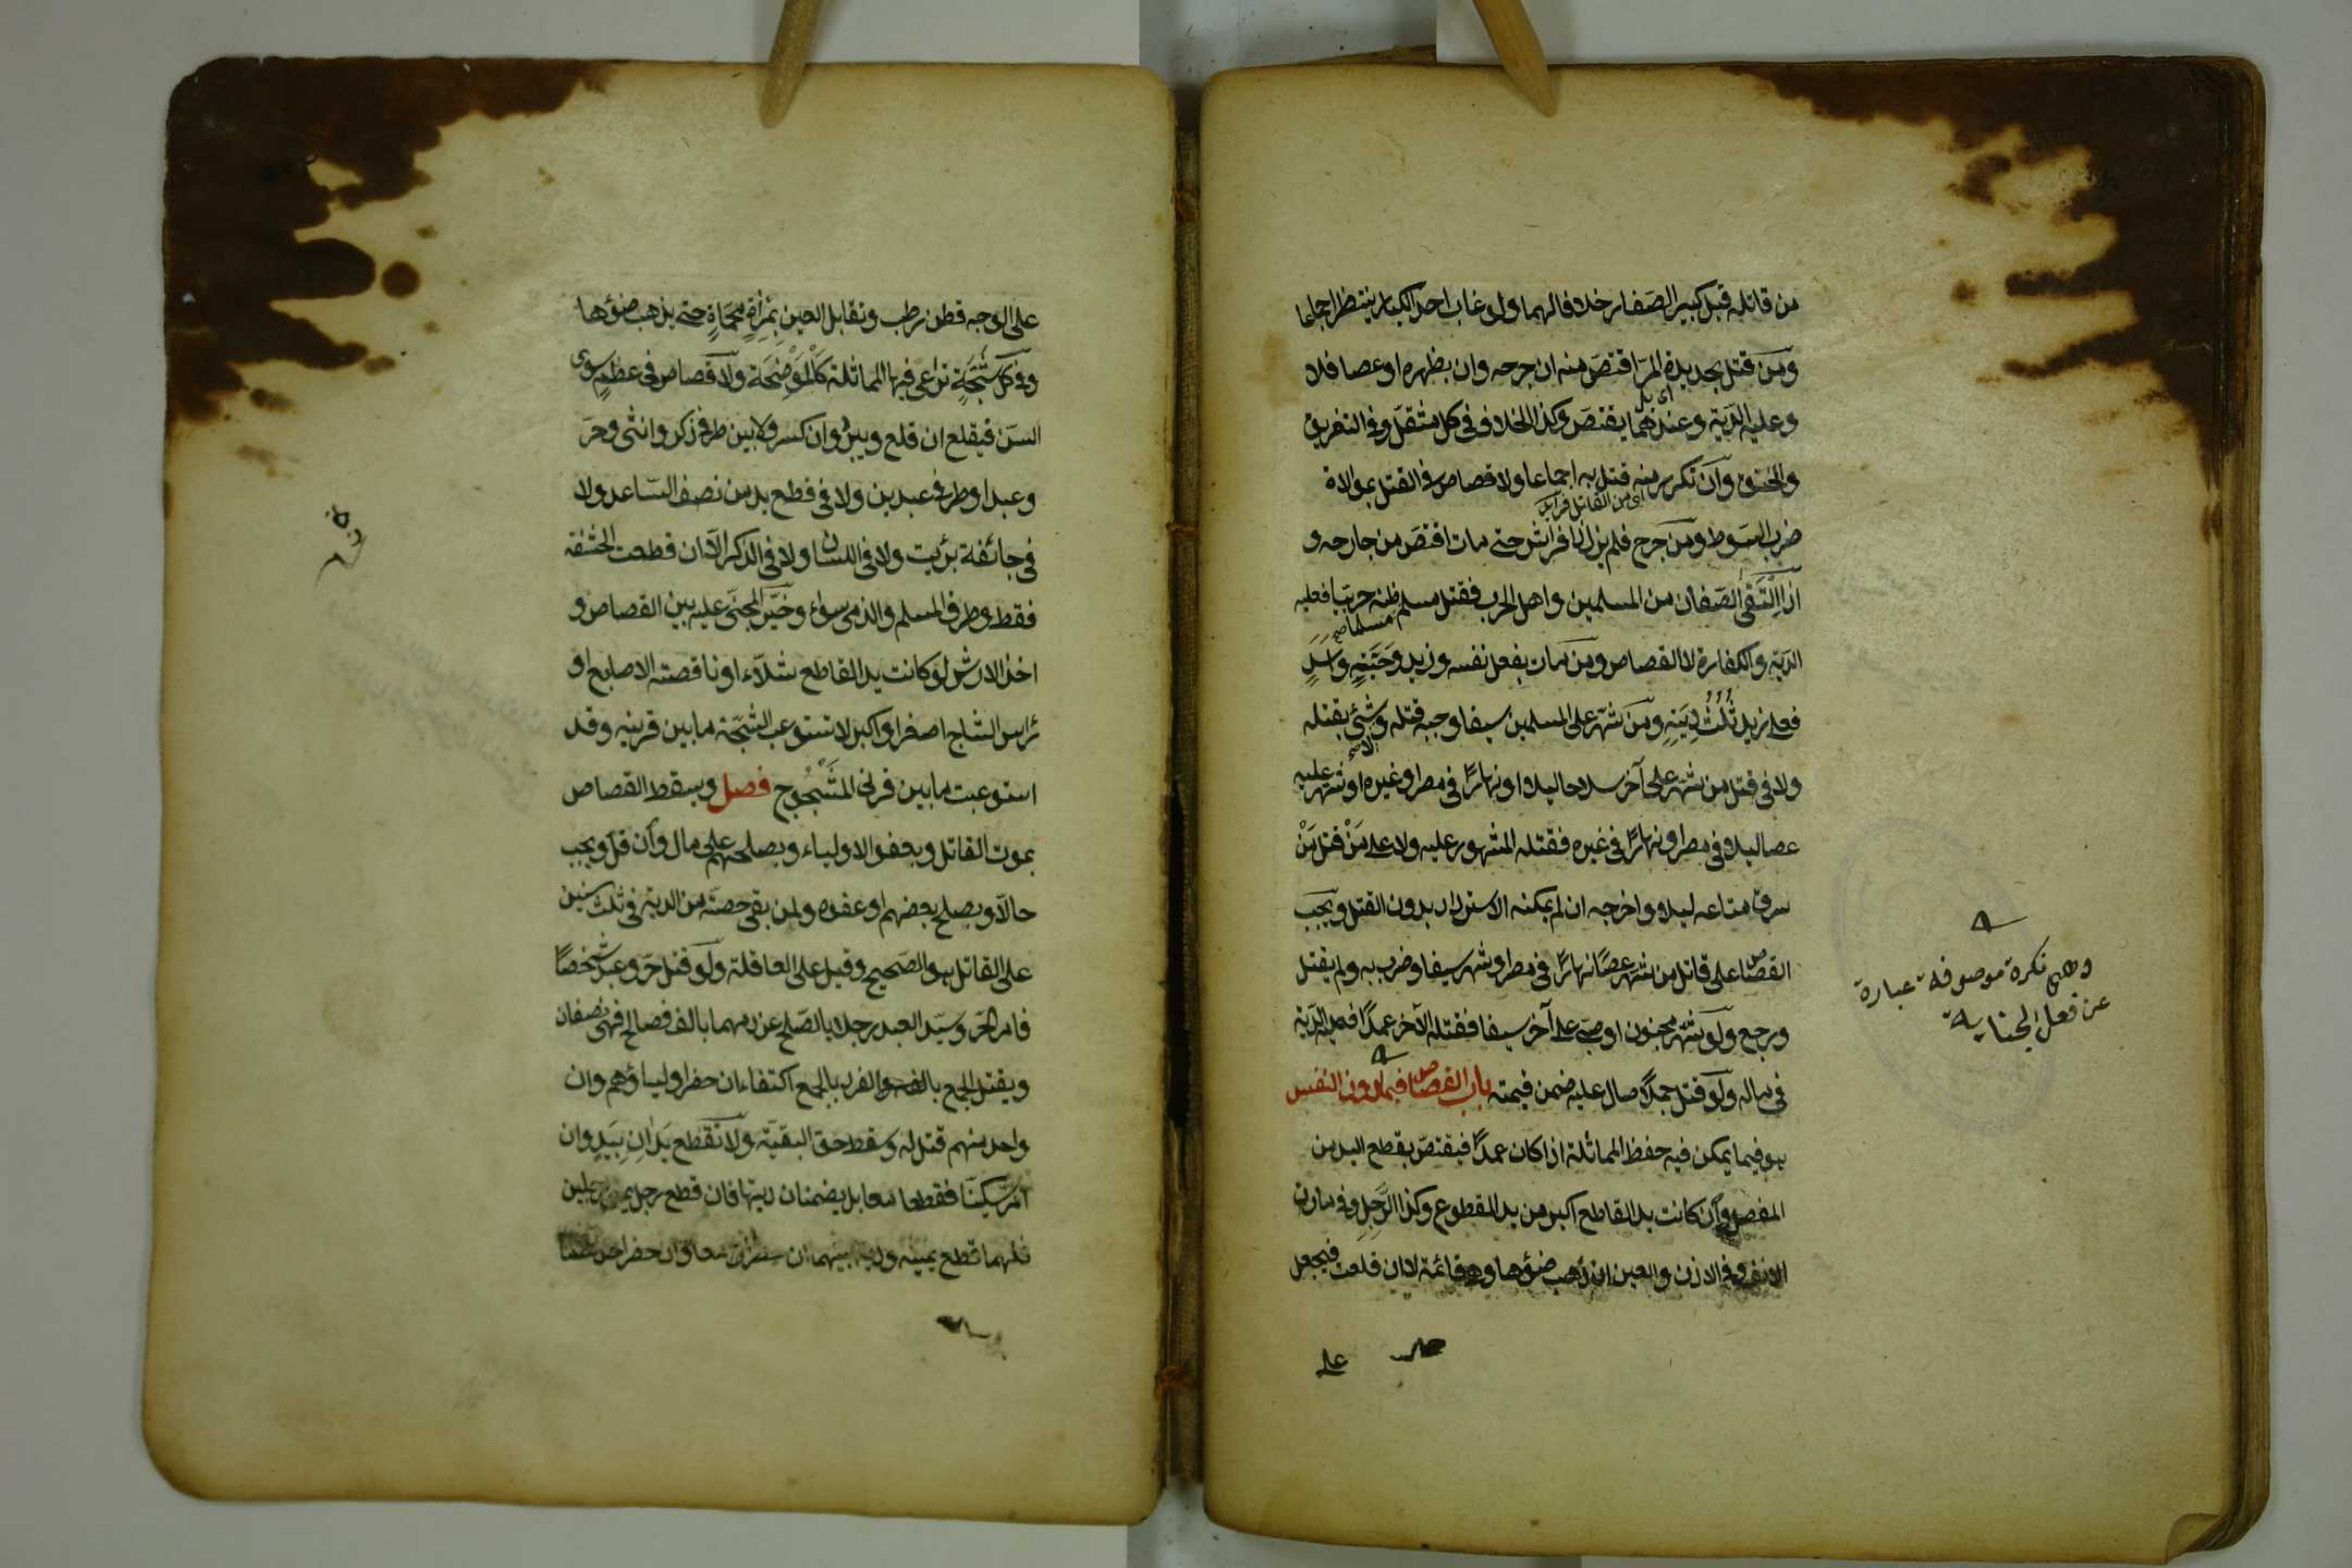 من قاتله قبل كبير الصغار خلافا لهما ولو غاب احد الكبار ينتظر اجماعا
ومن قتل بحديدة المرّ اقتصّ منه ان جرحه وان بظهره او عصا فلا
وعليه الدّية وعندهما يقتصّ وكذا الخلاف في كل مثقّل وفي التغريق
والخنق وان تكرر منه قتل به اجماعا ولا قصاص في القتل بموالاة
ضرب السّوط ومن جرح فلم يزل ذا فراش حتى مات اقتصّ من جارحه و
اذا التقى الصّفان من المسلمين واهل الحرب فقتل مسلم مسلما ظنه حربيّا فعليه
الدّية والكفارة لا القصاص ومن مات بفعل نفسه وزيد وحيّة واسد
فعلى زيد ثلث ديته ومن شهر على المسلمين سيفا وجب قتله ولا شئ بقتله
ولا في قتل من شهر على آخر سلاحا ليلا او نهارًا في مصر او غيره او شهر عليه
عصا ليلا في مصر او نهارًا في غيره فقتله المشهور عليه ولا على من قتل من
سرق متاعه ليلا واخرجه ان لم يمكنه الاسترداد بدون القتل ويجب
القصاص على قاتل من شهر عصًا نهارًا في مصر او شهر سيفا وضرب به ولم يقتل
ورجع ولو شهر مجنون او صبي على آخر سيفا فقتله الآخر عمدًا فعليه الدّية
في ماله ولو قتل جملًا صال عليه ضمن قيمته باب القصاص فيما دون النفس
هو فيما يمكن فيه حفظ المماثلة اذا كان عمدًا فيقتصّ بقطع اليد من
المفصل وان كانت يد القاطع اكبر من يد المقطوع وكذا الرّجل وفي مارن
الانف وفي الاذن والعين ان ذهب ضوؤها وهي قائمة لا ان قلعت فيجعل
على
وهي نكرة موصوفة عبارة
عن فعل الجناية
على الوجه قطن رطب وتقابل العين بمرآة محماة حتى يذهب ضوؤها
وفي كل شجّة تراعى فيها المماثلة كالموضحة ولا قصاص في عظم سوى
السنّ فيقلع ان قلع ويبرد ان كسر ولا بين طرفي ذكر وانثى وحرّ
وعبد او طرفي عبدين ولا في قطع يد من نصف السّاعد ولا
في جائفة برئت ولا في اللسان ولا في الذكر الّا ان قطعت الحشفة
فقط وطرف المسلم والذمي سواء وخيّر المجنيّ عليه بين القصاص و
اخذ الارش لو كانت يد القاطع شلّاء او ناقصة الاصابع او
رأس الشاج اصغر او اكبر لا تستوعب الشجّة ما بين قرنيه وقد
استوعبت ما بين قرني المشجوج فصل ويسقط القصاص
بموت القاتل وبعفو الاولياء وبصلحهم على مال وان قلّ ويجب
حالّا وبصلح بعضهم او عفوه ولمن بقي حصته من الدية في ثلث سنين
على القاتل هو الصّحيح وقيل على العاقلة ولو قتل حرّ وعبد شخصًا
فامر الحرّ وسيّد العبد رجلا بالصّلح عن دمهما بالف فصالح فهي نصفان
ويقتل الجمع بالفرد والفرد بالجمع اكتفاء ان حضر اولياؤهم وان
واحد منهم قتل له وسقط حق البقيّة ولا تقطع يدان بيد وان
امرّا سكينا فقطعا معا بل يضمنان ديتها فان قطع رجل يميني رجلين
فلهما قطع يمينه ودية بينهما ان حضرا معا وان حضر احدهما